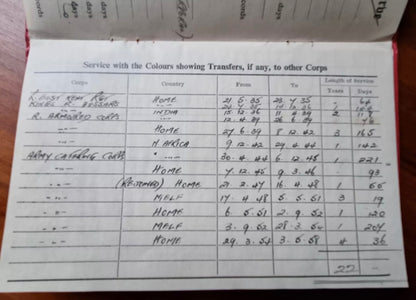 the
days
Service with the Colours showing Transfers, if any, to other Corps
Corps Country From To Length of Service
Years Days
R. WEST KENT REGT HOME 21 6 35 23 7 35 -
HOME
R. ARMOURED CORPS INDIA 15 12 36 11 4 39 2
-"- HOME 27 6 39 8 12 42 3 165
-"- N. AFRICA 9 12 42 29 4 44 1 142
ARMY CATERING CORPS -"- 30 4 44 6 12 45 1 221
-"- HOME 7 12 45 9 3 46 - 93
-"- (REJOINED) HOME 21 2 47 16 4 48 1 55
-"- MELF 17 4 48 5 5 51 3 19
-"- HOME 6 5 51 2 9 52 1 120
-"- MELF 3 9 52 28 3 54 1 207
-"- HOME 29 3 54 3 5 58 4 36
22 -